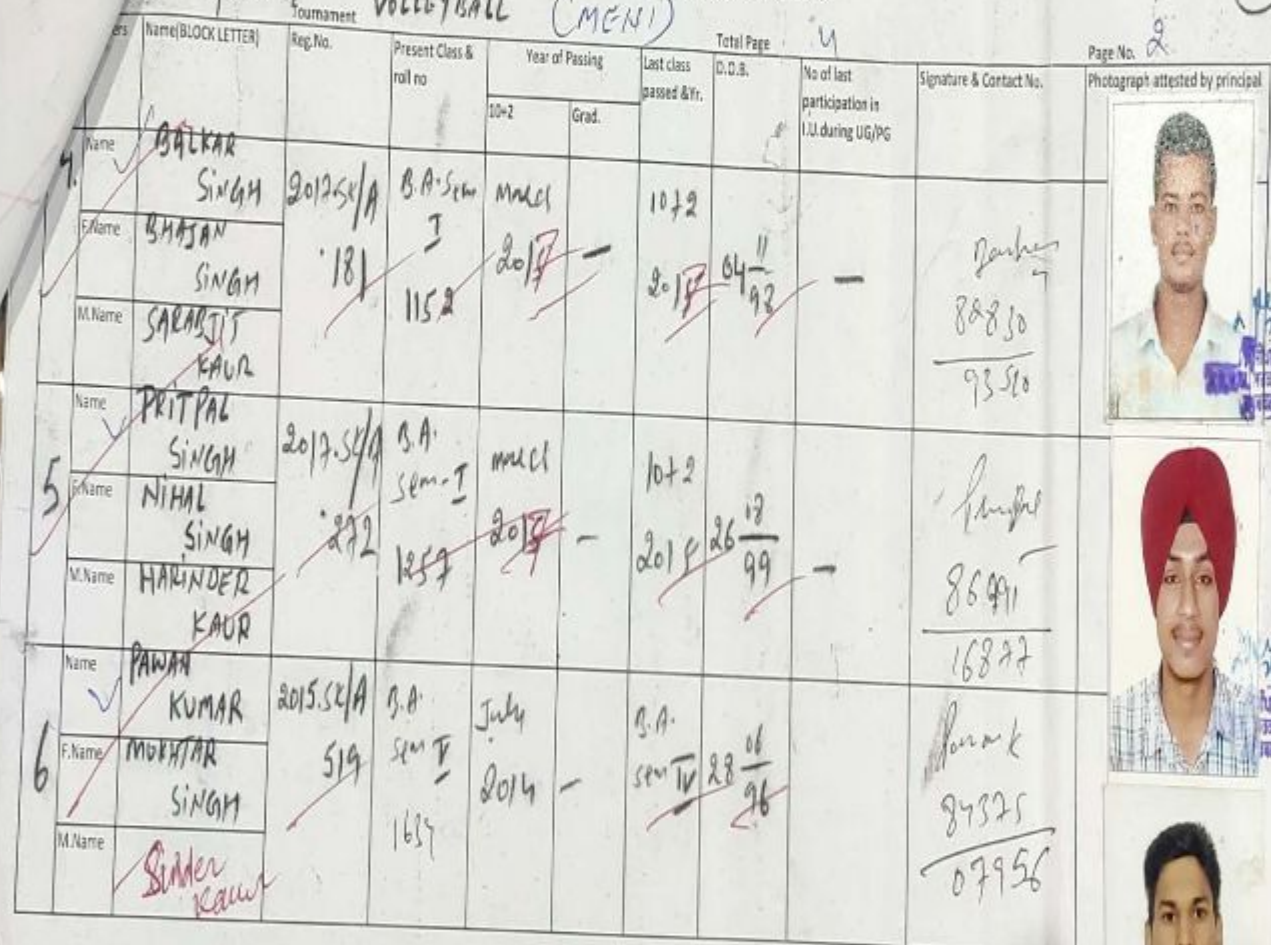 Tournament VOLLEYBALL (MEN)
Total Page 4
Page No. 2
Name(BLOCK LETTER) Reg.No. Present Class & roll no Year of Passing 10+2 Grad. Last class passed &Yr. D.O.B. No of last participation in I.U.during UG/PG Signature & Contact No. Photograph attested by principal
4.
Name BALKAR SINGH
F.Name BHAJAN SINGH
M.Name SARABJIT KAUR
2017.SK/A 181
B.A. Sem I 1152
March 2017 —
10+2 2017
04 11 98
—
82830 93510
5
Name PRITPAL SINGH
F.Name NIHAL SINGH
M.Name HARINDER KAUR
2017.SK/A 272
B.A. sem-I 1257
March –
10+2
26 08 99
–
16877
6
Name PAWAN KUMAR
F.Name MUKHTAR SINGH
M.Name Sinder Kaur
2015.SK/A 519
B.A. sem V 1634
July 2014 –
B.A. sem IV
28 06 96
Pawan K
84375 07956